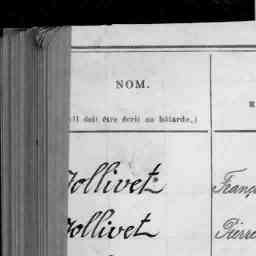 NOM.
(Il doit être écrit en bâtarde.)
Jollivet
Jollivet
Pierre